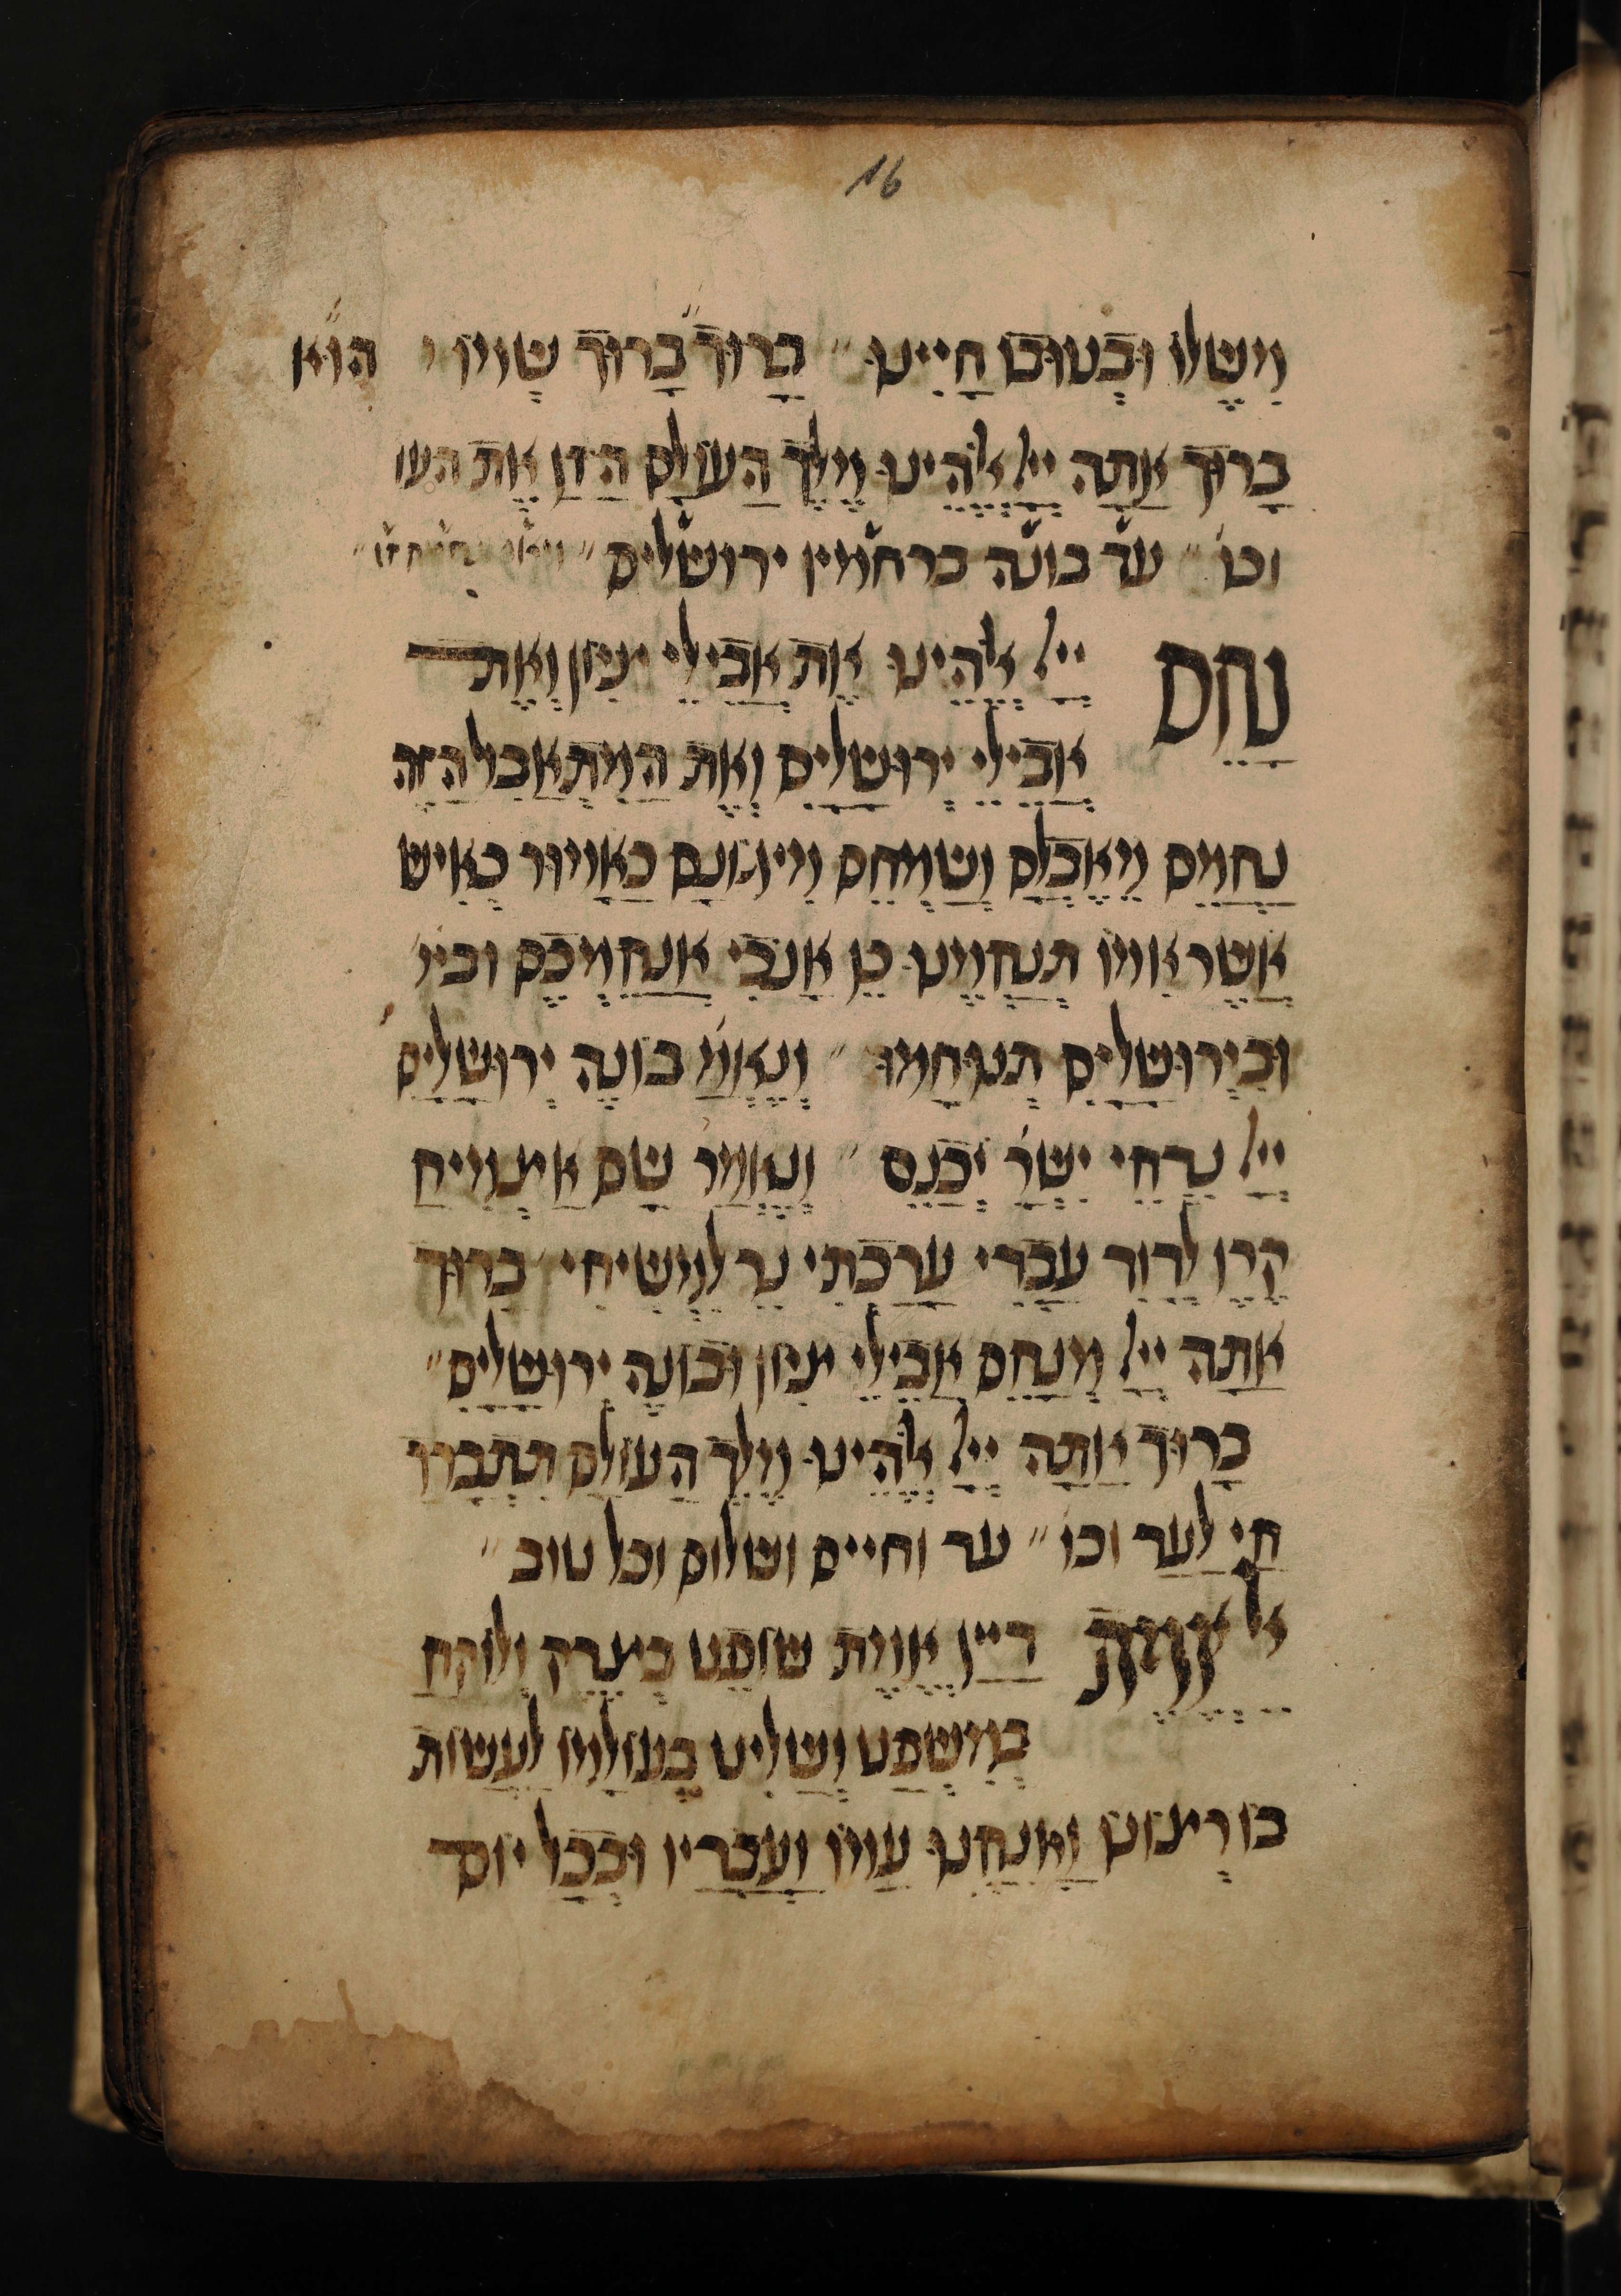 16
מִשֶּׁלּוֹ וּבְטוּבוֹ חָיִינוּ׃ בָּרוּךְ בָּרוּךְ שְׁמוֹ הוּא
בָּרוּךְ אַתָּה יְיָ אֱלֹהֵינוּ מֶלֶךְ הָעוֹלָם הַזָּן אֶת הָעוֹ
וכו׳ ׃ עד בונה ברחמיו ירושלים ׃
נַחֵם יְיָ אֱלֹהֵינוּ אֶת אֲבֵילֵי צִיּוֹן וְאֶת
אֲבֵילֵי יְרוּשָׁלַיִם וְאֶת הַמִּתְאַבְּל הַזֶּה
נַחֲמֵם מֵאֶבְלָם וְשַׂמְּחֵם מִיגוֹנָם כָּאָמוּר כְּאִישׁ
אֲשֶׁר אִמּוֹ תְּנַחֲמֶנּוּ כֵּן אָנֹכִי אֲנַחֶמְכֶם
וּבִירוּשָׁלַיִם תְּנוּחָמוּ ׃ וְנֶאֱמַ׳ בּוֹנֵה יְרוּשָׁלַיִם
יְיָ נִדְחֵי יִשְׂרָ׳ יְכַנֵּס ׃ וְנֶאֱמַר שָׁם אַצְמִיחַ
קֶרֶן לְדָוִד עָרַכְתִּי נֵר לִמְשִׁיחִי ׃ בָּרוּךְ
אַתָּה יְיָ מְנַחֵם אֲבֵילֵי צִיּוֹן וּבוֹנֵה יְרוּשָׁלַיִם ׃
בָּרוּךְ אַתָּה יְיָ אֱלֹהֵינוּ מֶלֶךְ הָעוֹלָם תִּתְבָּרַךְ
חַי לָעַד וכו׳ ׃ עד וחיים ושלום וכל טוב ׃
אל אֱמֶת דַּיָּין אֱמֶת שׁוֹפֵט בְּצֶדֶק וְלוֹקֵחַ
בְּמִשְׁפָּט וְשַׁלִּיט בְּעוֹלָמוֹ לַעֲשׂוֹת
בּוֹ רְצוֹנוֹ וַאֲנַחְנוּ עַמּוֹ וַעֲבָדָיו וּבְכָל יוֹם